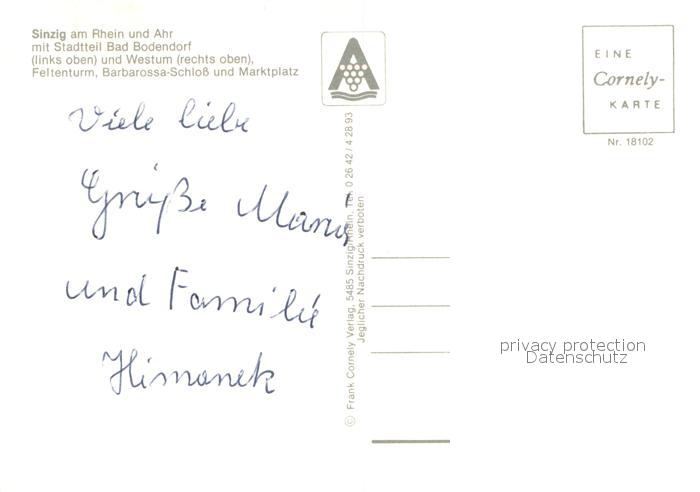 Sinzig am Rhein und Ahr
mit Stadtteil Bad Bodendorf
(links oben) und Westum (rechts oben),
Feltenturm, Barbarossa-Schloß und Marktplatz
Viele liebe
Grüße
und Familie
Himanek
© Frank Cornely Verlag, 5485 Sinzig/Rhein, Tel. 0 26 42 / 4 28 93
Jeglicher Nachdruck verboten
EINE
Cornely-
KARTE
Nr. 18102
privacy protection
Datenschutz